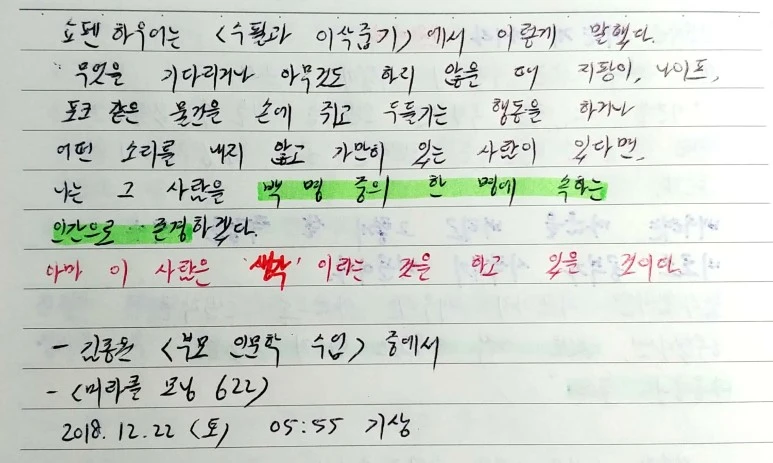 쇼펜하우어는 <수필과 이삭줍기>에서 이렇게 말했다.
무엇을 기다리거나 아무것도 하지 않을 때 지팡이, 나이프,
포크 같은 물건을 손에 쥐고 두들기는 행동을 하거나
어떤 소리를 내지 않고 가만히 있는 사람이 있다면,
나는 그 사람을 백 명 중의 한 명에 속하는
인간으로 존경하겠다.
아마 이 사람은 '생각' 이라는 것을 하고 있을 것이다.
- 김종원 <부모 인문학 수업> 중에서
- <미라클 모닝 622>
2018.12.22 (토) 05:55 기상